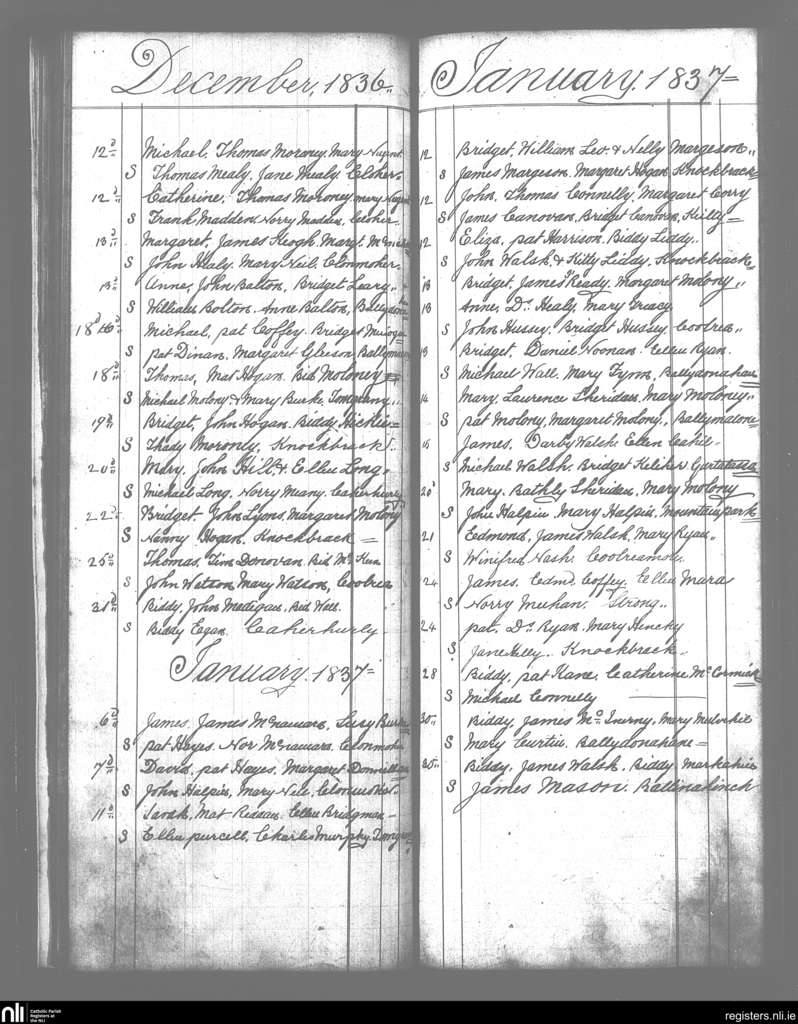 December, 1836
12d Michael, Thomas Moroney, Mary Nugent
S Thomas Mealy, Jane Mealy Cloher
12d Catherine, Thomas Moroney, Mary
S Frank Madden, Norry Madden, Cloher
13 Margaret, James Keogh, Margt.
S John Healy. Mary Neil. Clonmoher
13 Anne, John Balton, Bridget Leary
S William Bolton. Anne Balton,
18d Michael, pat Coffey. Bridget
S pat Dinan, Margaret Gleeson,
18d Thomas, Mat Hogan. Bid Moloney
S Michael Molony & Mary Burke
19d Bridget, John Hogan. Biddy Hickie
S Thady Moroney, Knockbrack
20d Mary, John Hill & Ellen Long
S Michael Long, Norry Meany. Caherhurly
22d Bridget. John Lyons, Margaret Molony
S Nanny Hogan. Knockbrack
25d Thomas, Tim Donovan. Bid
S John Watson Mary Watson, Coolrea
31d Biddy, John Madigan. Bid
S Biddy Egan. Caherhurly
January. 1837
6d James, James McNamara, Susy
S pat Hayes. Nor McNamara. Clonmoher
7d David, pat Hayes. Margaret
S John Halpin, Mary Neil. Clonmoher
11d Sarah, Mat Reddan. Ellen Bridgman
S Ellen purcell. Charles Murphy.
January. 1837
12 Bridget, William Leo. & Nelly Margeson
S James Margeson. Margaret Hogan. Knockbrack
12 John, Thomas Connelly, Margaret Corry
S James Canovan, Bridget Canovan. Killy
12 Eliza, pat Harrison. Biddy Liddy
S John Walsh & Kitty Liddy. Knockbrack
13 Bridget. James Ready. Margaret Molony
13 Anne, Ds. Healy, Mary Tracy
S John Hussey. Bridget Hussey. Coolrea
13 Bridget, Daniel Noonan. Ellen Ryan.
S Michael Wall. Mary Flynn, Ballydonahane
14 Mary, Laurence Sheridan, Mary Moloney
S pat Molony, Margaret Molony, Ballymalone
15 James, Darby Walsh, Ellen Cahil
S Michael Walsh. Bridget Keliher
20d Mary. Bathly Sheridan, Mary Molony
S John Halpin. Mary Halpin, Mountainpark
21 Eedmond, James Walsh, Mary Ryan
S Winifred Nash. Coolreamore
24 James. Edmd. Coffey. Ellen Mara
S Norry Meehan. Strong
24 pat, Ds. Ryan. Mary Henchy
S Jane Kelly. Knockbrack
28 Biddy, pat Kane, Catherine McCormick
S Michael Connelly
30 Biddy, James McInerny, Mary
S Mary Curtin. Ballydonahane
30 Biddy, James Walsh. Biddy
S James Mason. Ballinahinch
nli
Catholic Parish
Registers at
the NLI
registers.nli.ie